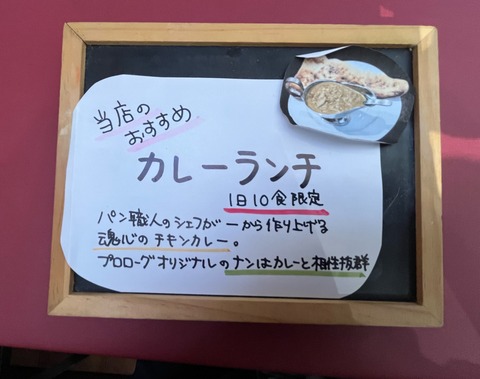 当店の
おすすめ
カレーランチ
1日10食限定
パン職人のシェフが一から作り上げる
魂心のチキンカレー。
プロローグオリジナルのナンはカレーと相性抜群